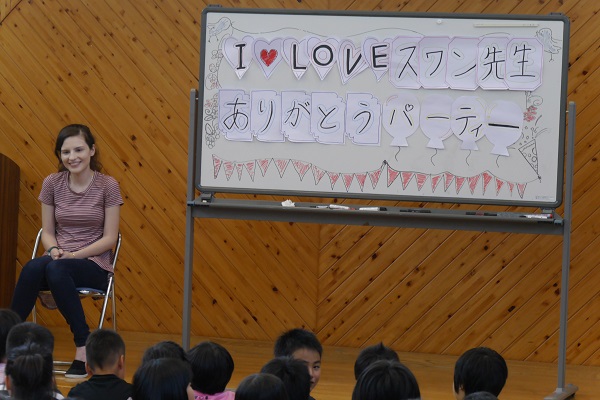 I ♥ LOVE スワン先生
ありがとうパーティー